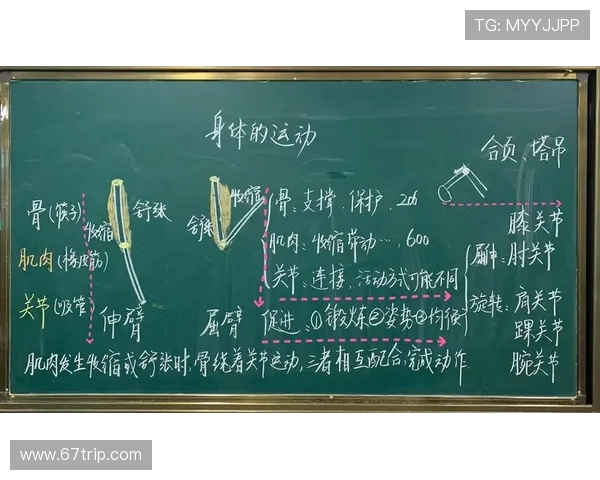 TG: MYYJJPP
身体的运动
合页、塔吊
骨(筷子)
肌肉(橡皮筋)
关节(吸管)
收缩
舒张
伸臂
舒张
收缩
屈臂
骨:支撑、保护、206
肌肉:收缩带动…,600
关节:连接、活动方式可能不同
促进:①锻炼②姿势③均衡
膝关节
屈伸:肘关节
旋转:肩关节
踝关节
腕关节
肌肉发生收缩或舒张时,骨绕着关节运动,三者相互配合,完成动作.
www.67trip.com